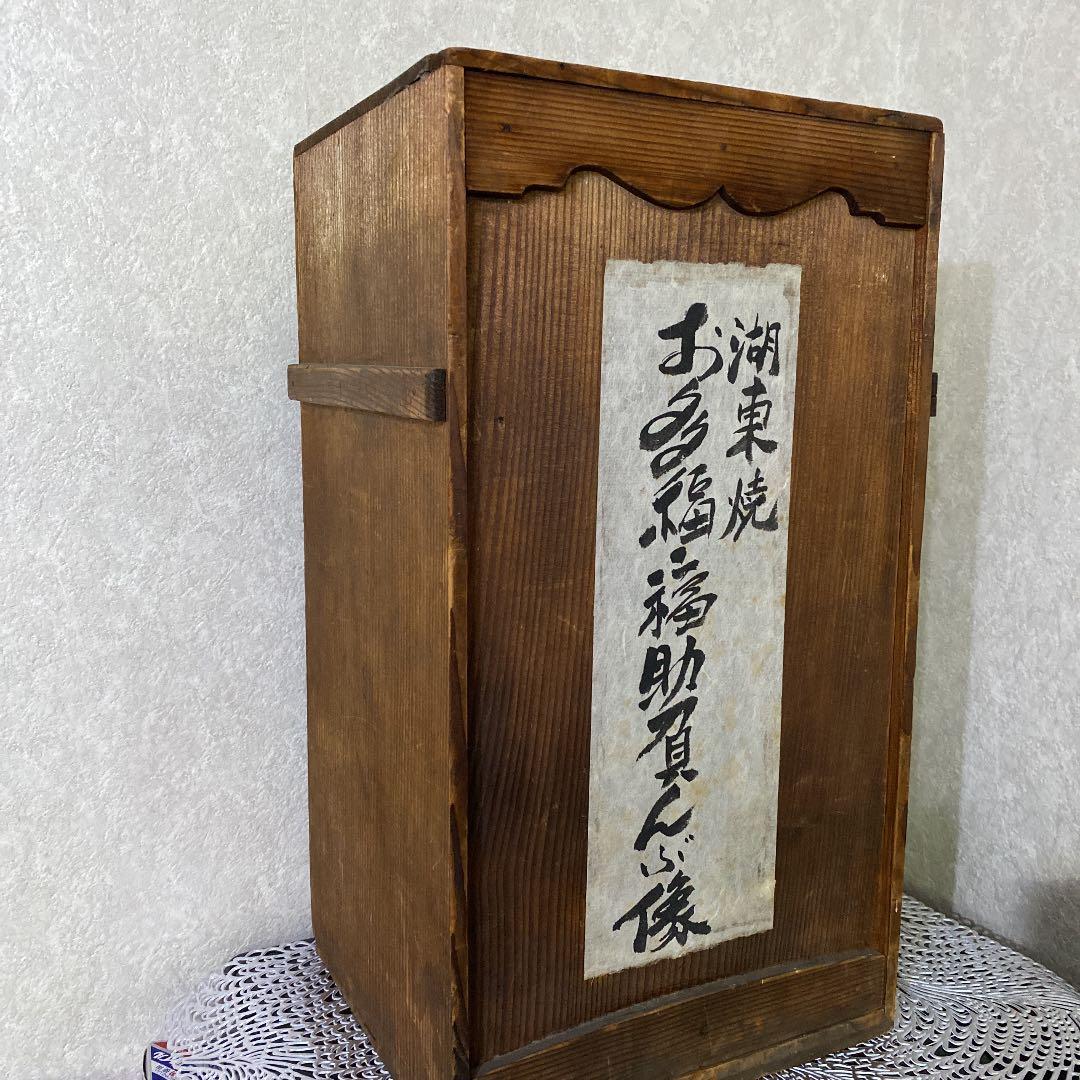 湖東焼
お多福福助負んぶ像